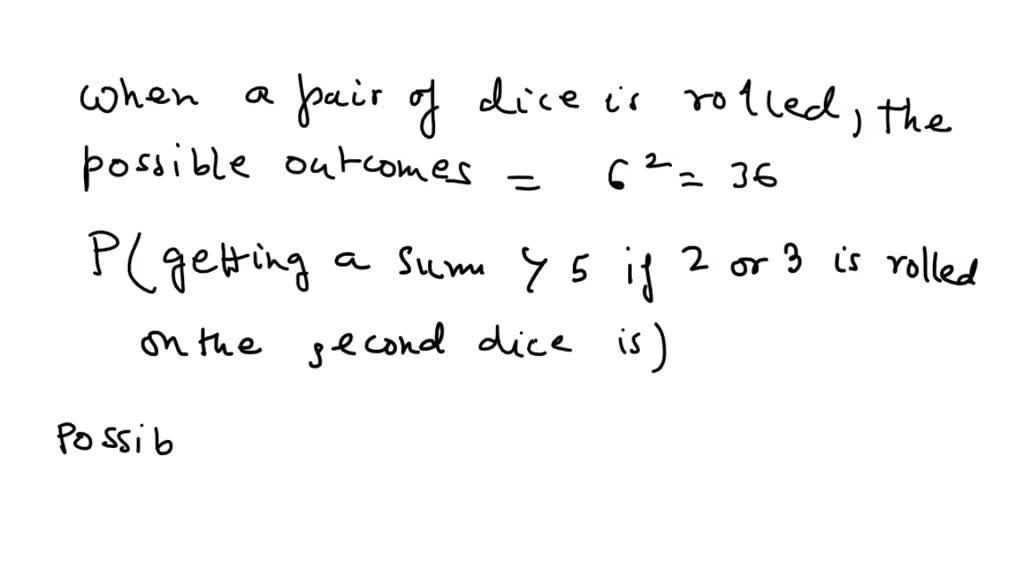 when a pair of dice is rolled, the
possible outcomes = 6² = 36
P(getting a sum > 5 if 2 or 3 is rolled
on the second dice is)
Possib